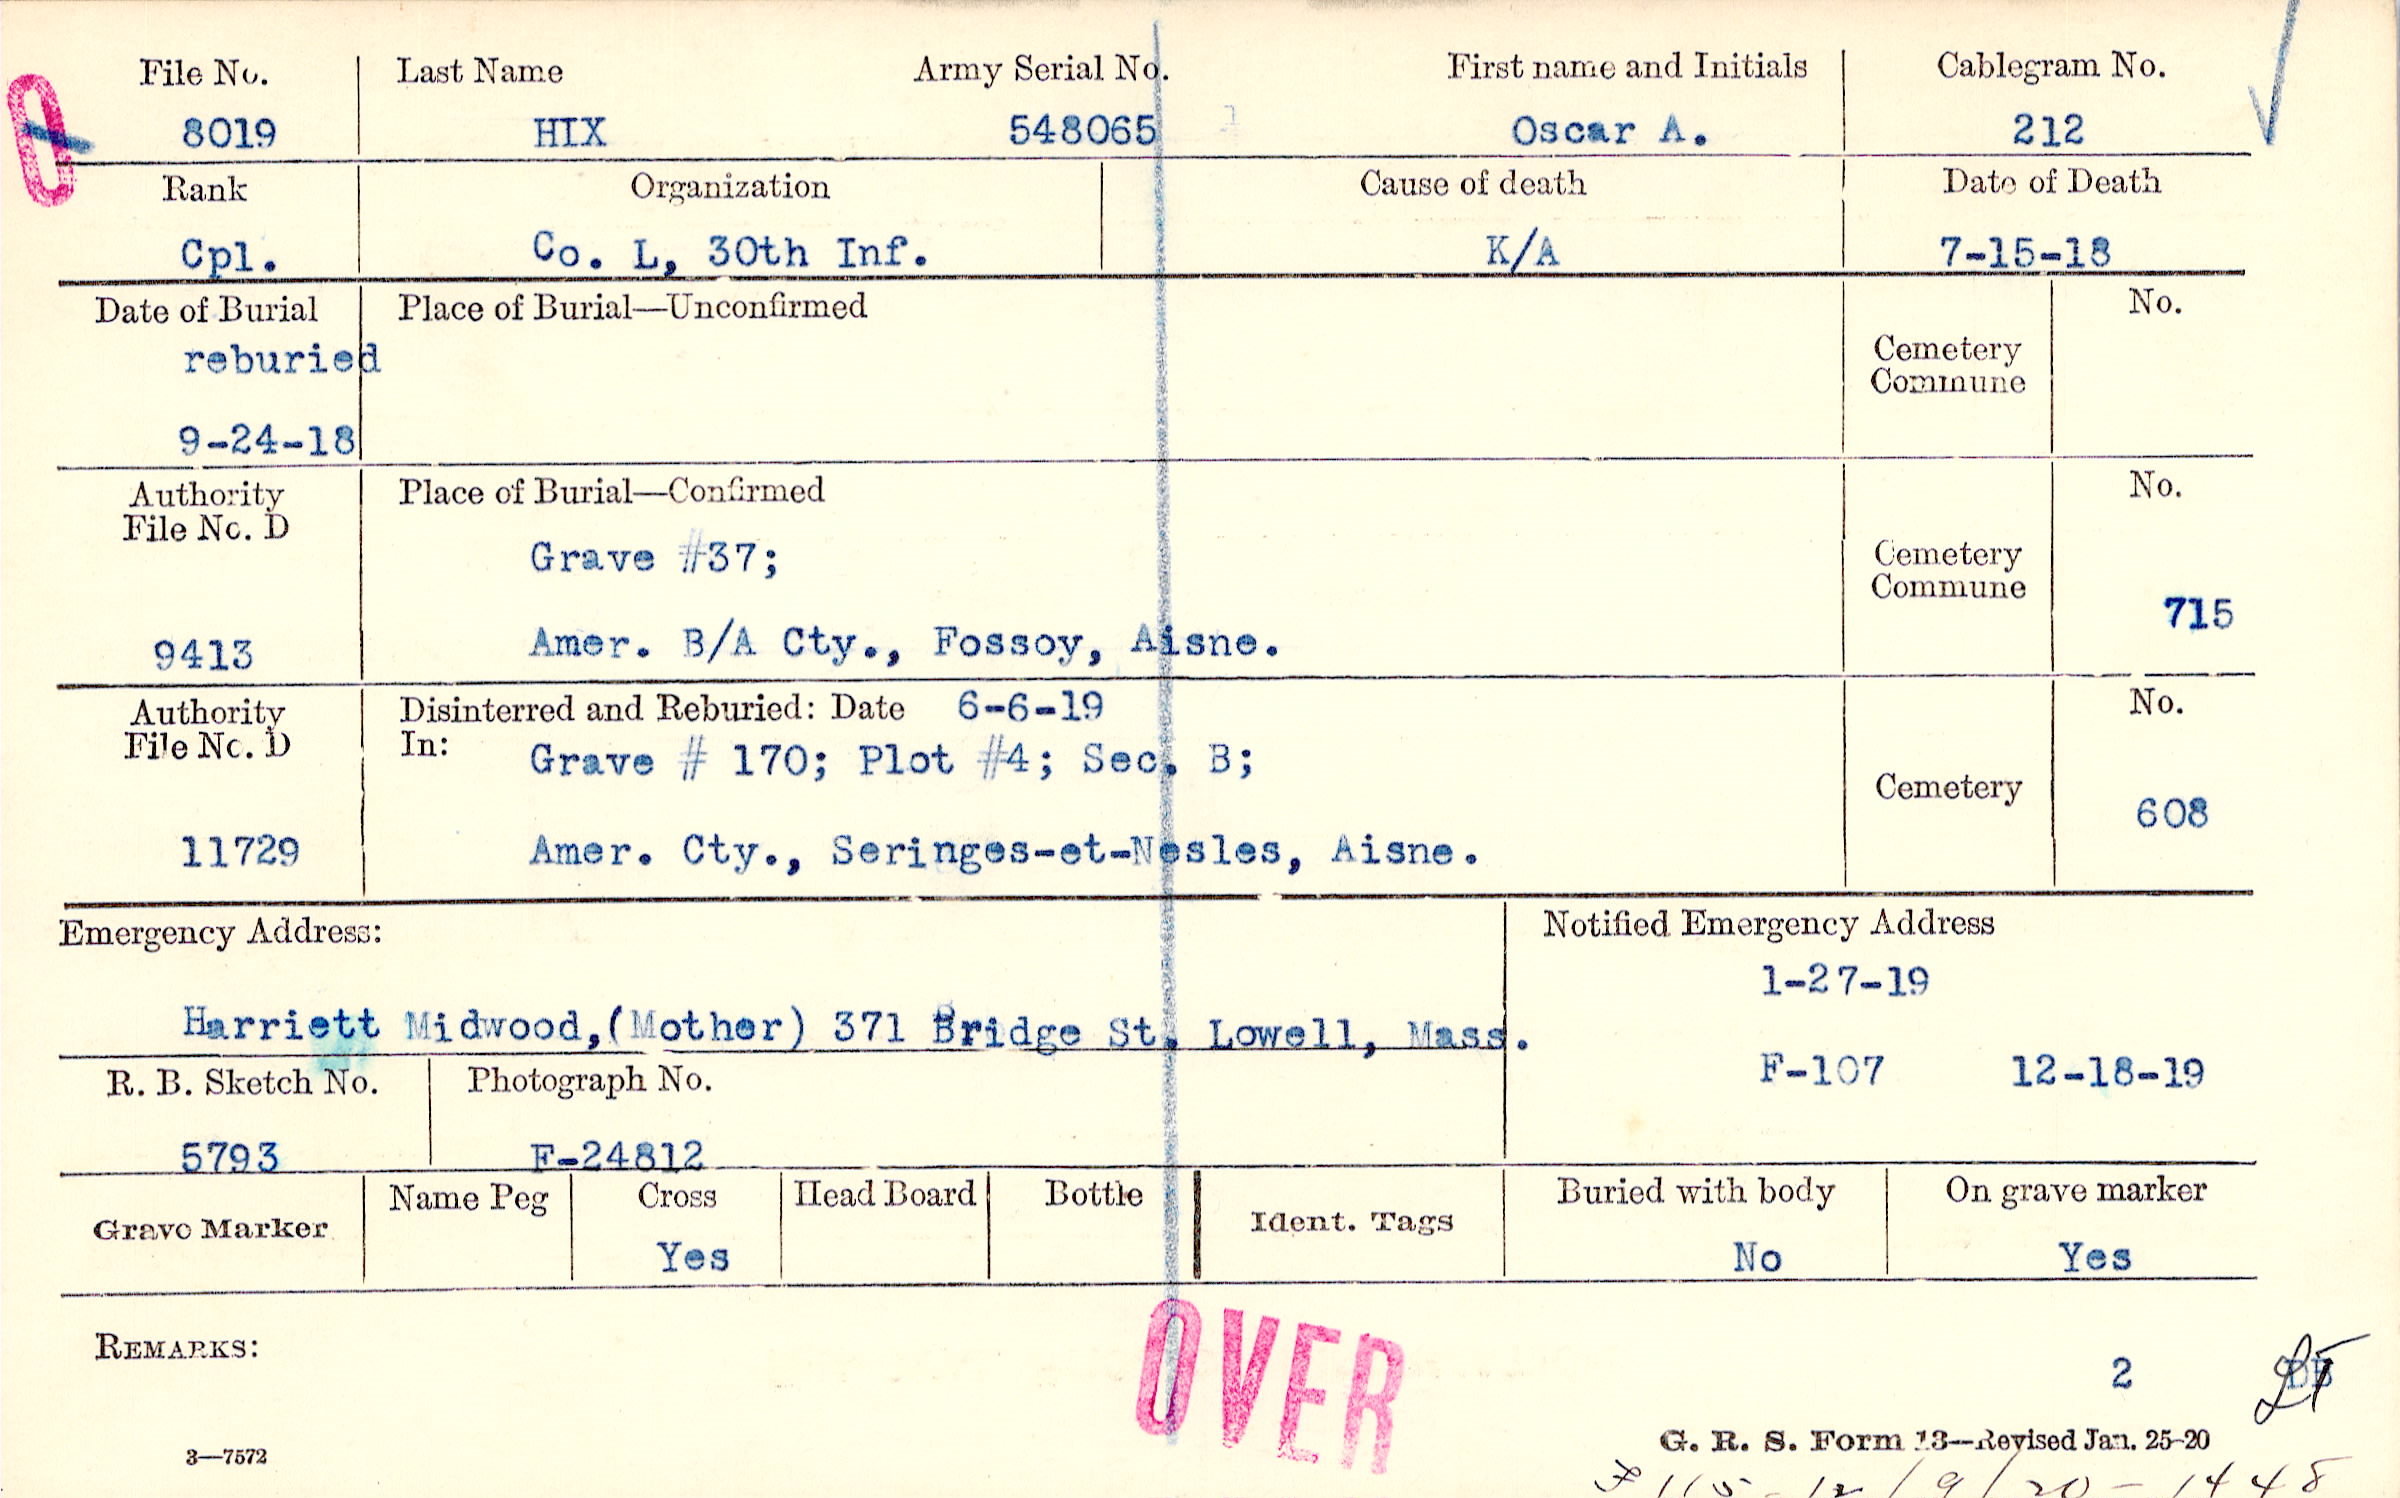 File No. Last Name Army Serial No. First name and Initials Cablegram No.
O 8019 HIX 548065 Oscar A. 212
Rank Organization Cause of death Date of Death
Cpl. Co. L, 30th Inf. K/A 7-15-18
Date of Burial Place of Burial—Unconfirmed No.
reburied Cemetery
Commune
9-24-18
Authority Place of Burial—Confirmed No.
File No. D
Grave #37; Cemetery
Commune
715
9413 Amer. B/A Cty., Fossoy, Aisne.
Authority Disinterred and Reburied: Date 6-6-19 No.
File No. D In: Grave # 170; Plot #4; Sec. B;
Cemetery 608
11729 Amer. Cty., Seringes-et-Nesles, Aisne.
Emergency Address: Notified Emergency Address
1-27-19
Harriett Midwood,(Mother) 371 Bridge St. Lowell, Mass.
F-107 12-18-19
R. B. Sketch No. Photograph No.
5793 F-24812
Grave Marker Name Peg Cross Head Board Bottle Ident. Tags Buried with body On grave marker
Yes No Yes
REMARKS:
OVER
2
3—7572 G. R. S. Form 13—Revised Jan. 25-20
115-12/9/20-1448